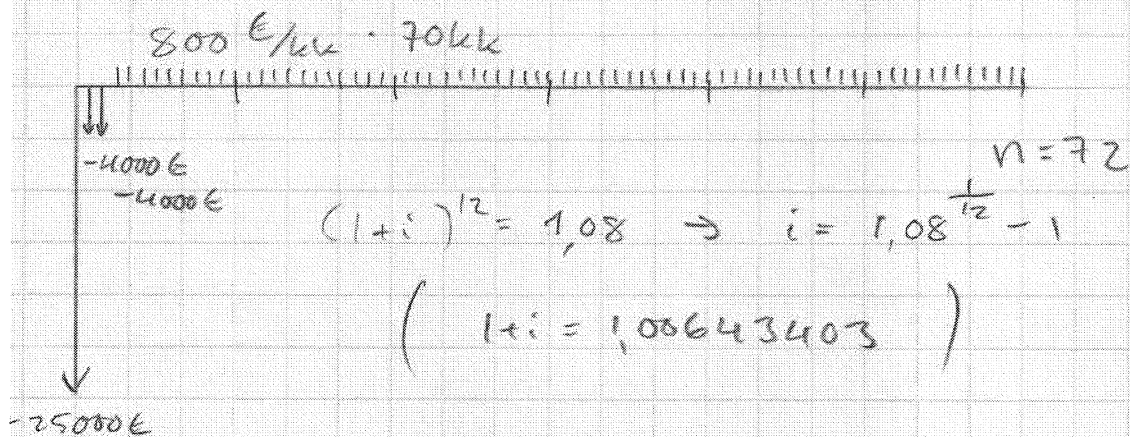 800 €/kk · 70kk
-4000€
-4000€
n=72
(1+i)^12 = 1,08 → i = 1,08^(1/12) - 1
( 1+i = 1,00643403 )
-25000€